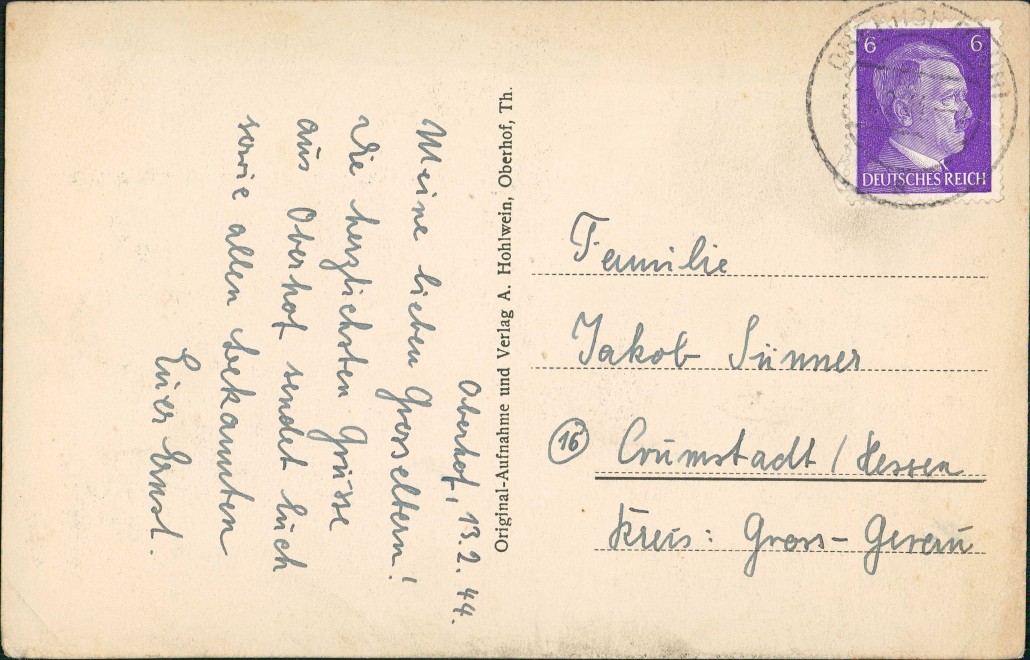 Oberhof, 13.2.44.
Meine lieben Grosseltern!
Die herzlichsten Grüsse
aus Oberhof sendet Euch
sowie allen Bekannten
Euer Ernst.
Original-Aufnahme und Verlag A. Hohlwein, Oberhof, Th.
6 6
DEUTSCHES REICH
OBERHOF
Familie
Jakob Sünner
16 Crumstadt / Hessen
Kreis: Gross-Gerau